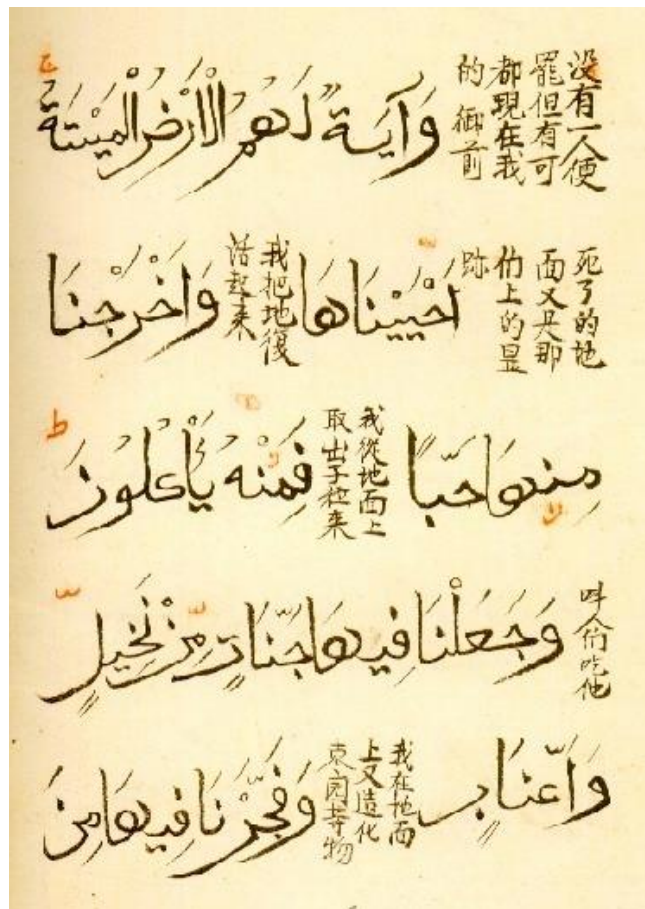 没有一人便
罷但有可
都現在我
的御前
وَآيَةٌ لَهُمُ الْاَرْضُ الْمَيْتَةُ
死了的地
面又是那
們上的显
跡
اَحْيَيْنَاهَا
我把地復
活起来
وَاَخْرَجْنَا
مِنْهَا حَبًّا
我從地面上
取出子粒来
فَمِنْهُ يَأْكُلُونَ
叫人們吃他
وَجَعَلْنَا فِيهَا جَنَّاتٍ مِنْ نَخِيلٍ
وَاَعْنَابٍ
我在地面
上又造化
園等物
وَفَجَّرْنَا فِيهَا مِنَ